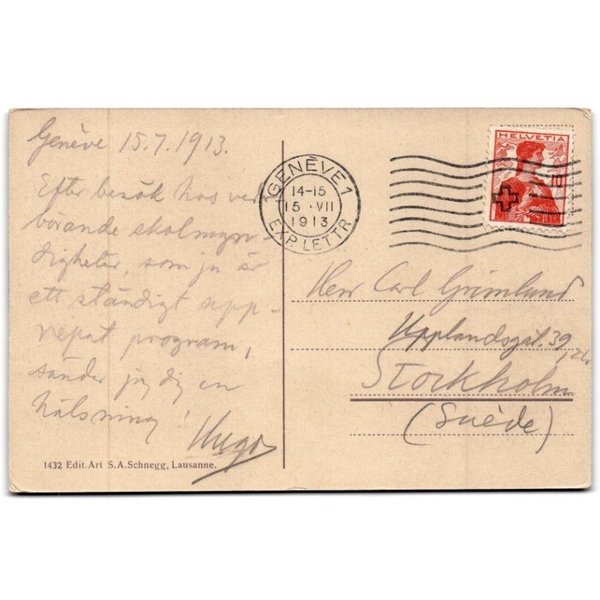 Genève 15.7.1913.
Efter besök hos ved-
börande skolmyn-
digheter, som ju är
ett ständigt upp-
repat program,
sänder jag dig en
hälsning! Hugo
1432 Edit. Art S.A. Schnegg, Lausanne.
1 GENÈVE 1
14-15
15 · VII
1913
EXP. LETTR.
HELVETIA
Herr Carl Grimlund
Upplandsgat. 39,
Stockholm
(Suède)